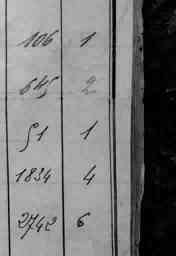 106 1
645 2
51 1
1834 4
2742 6